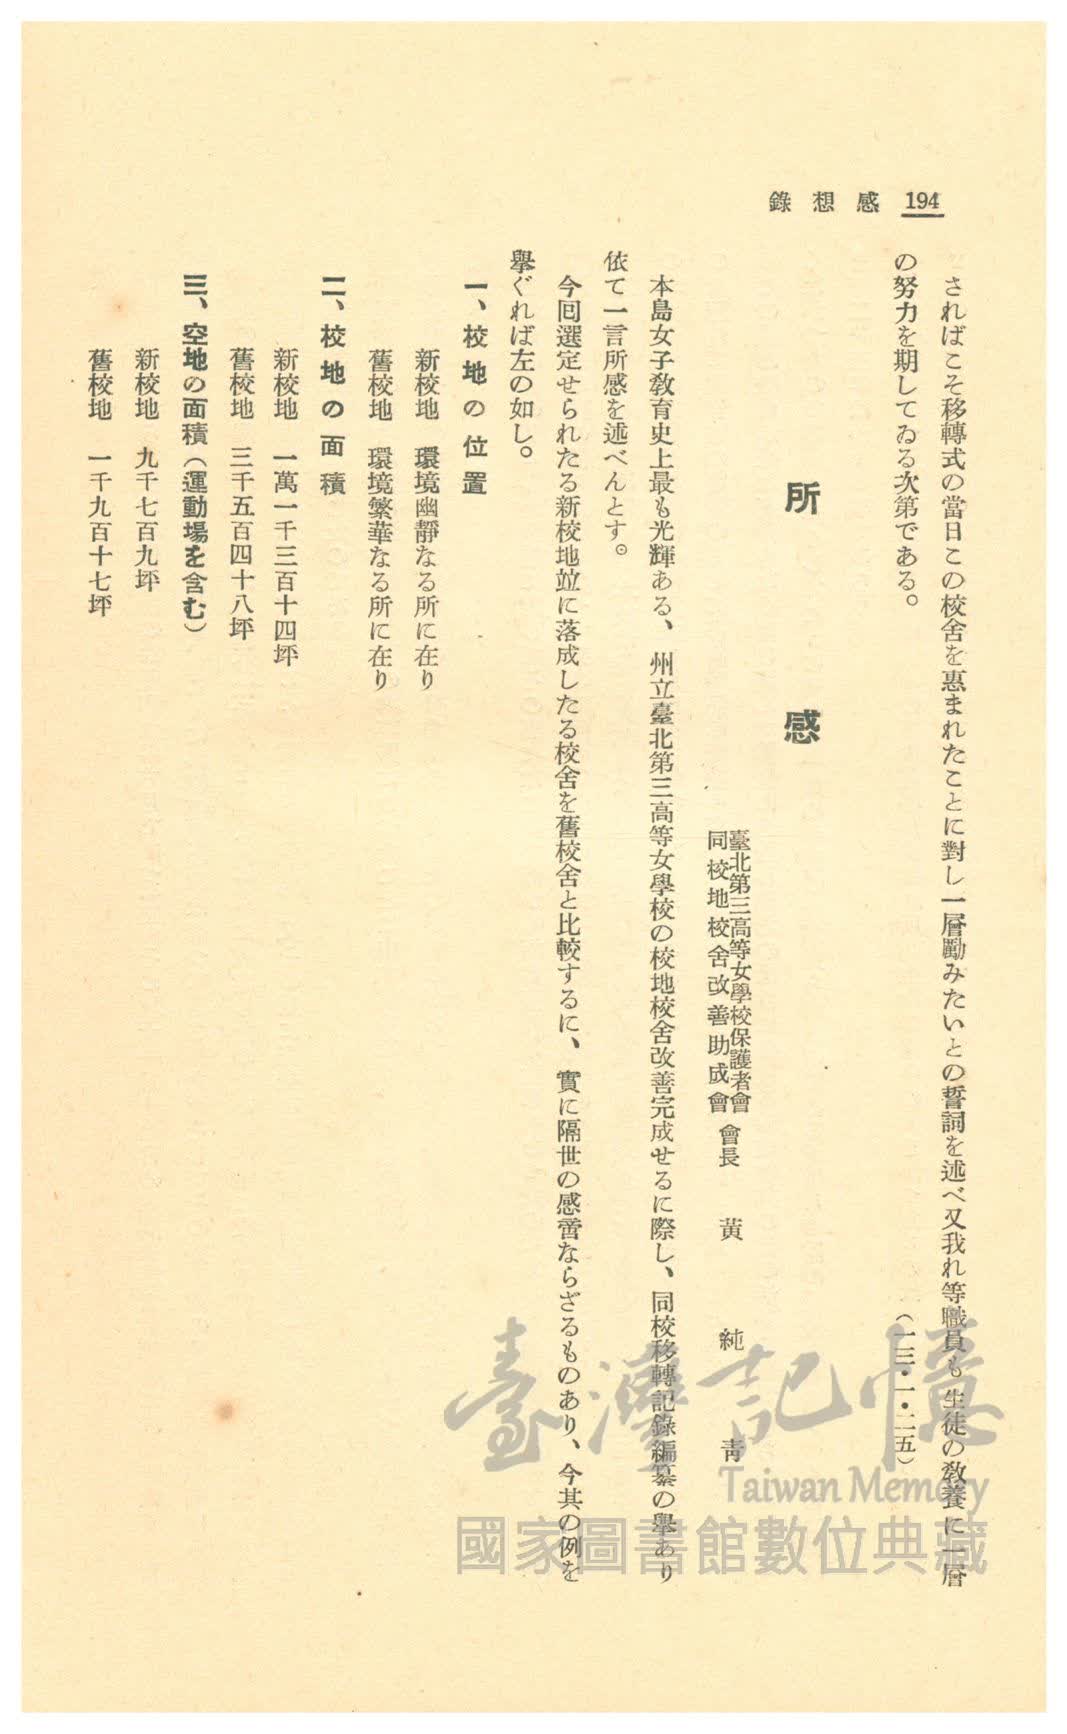 194 感想錄
さればこそ移轉式の當日この校舍を惠まれたことに對し一層勵みたいとの誓詞を述べ又我れ等職員も生徒の教養に一層
の努力を期してゐる次第である。
(一三・一・二五)
所感
臺北第三高等女學校保護者會
同校地校舍改善助成會
會長 黃純靑
本島女子敎育史上最も光輝ある、州立臺北第三高等女學校の校地校舍改善完成せるに際し、同校移轉記錄編纂の擧あり
依て一言所感を述べんとす。
今囘選定せられたる新校地竝に落成したる校舍を舊校舍と比較するに、實に隔世の感啻ならざるものあり、今其の例を
擧ぐれば左の如し。
一、校地の位置
新校地 環境幽靜なる所に在り
舊校地 環境繁華なる所に在り
二、校地の面積
新校地 一萬一千三百十四坪
舊校地 三千五百四十八坪
三、空地の面積(運動場を含む)
新校地 九千七百九坪
舊校地 一千九百十七坪
臺灣記憶
Taiwan Memory
國家圖書館數位典藏